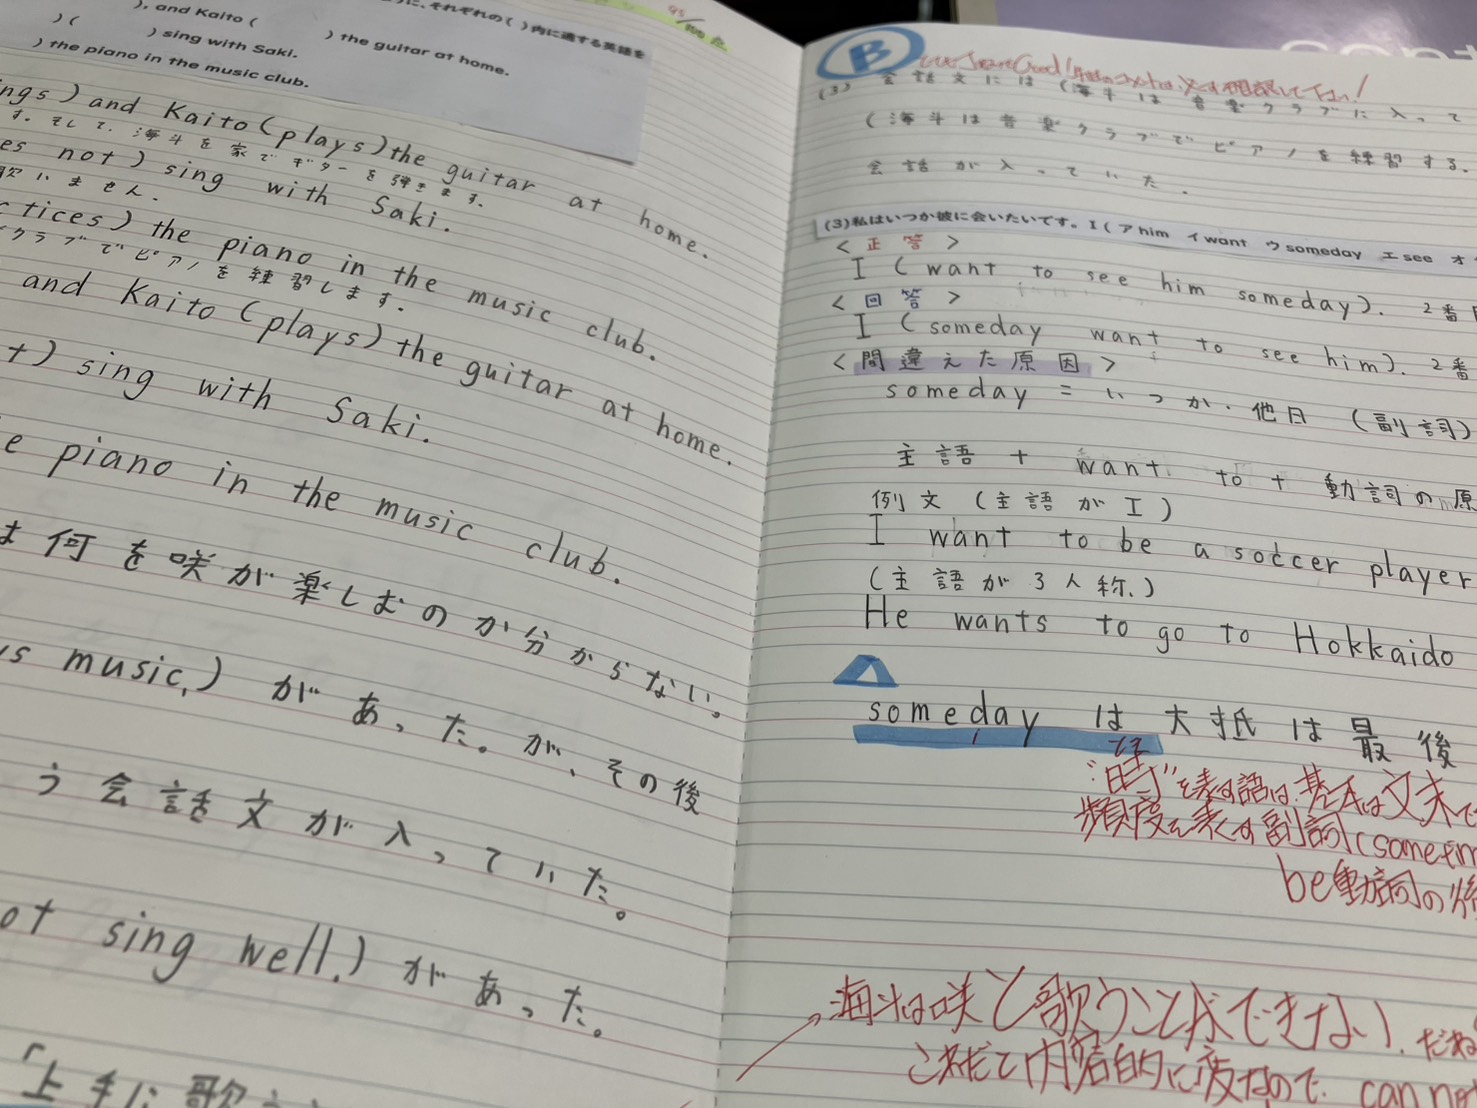 に、それぞれの( )内に適する英語を
), and Kaito (
) the guitar at home.
)(
) sing with Saki.
) the piano in the music club.
ngs) and Kaito (plays) the guitar at home.
す。そして、海斗を家でギターを弾きます。
es not) sing with Saki.
歌いません。
ctices) the piano in the music club.
クラブでピアノを練習します。
and Kaito (plays) the guitar at home.
t) sing with Saki.
e piano in the music club.
は何を咲が楽しむのか分からない。
us music,) があった。が、その後
う会話文が入っていた。
ot sing well.) があった。
「上手に歌
95/100点
B
Good!
(2) 会話文には(海斗は音楽クラブに入って
(海斗は音楽クラブでピアノを練習する。
会話が入っていた.
(3)私はいつか彼に会いたいです。I(ア him イ want ウ someday エ see オ
<正答>
I (want to see him someday). 2番
<回答>
I (someday want to see him). 2番
<間違えた原因>
someday = いつか.他日 (副詞)
主語 + want to + 動詞の原
例文(主語がI)
I want to be a soccer player
(主語が3人称、)
He wants to go to Hokkaido
someday は大抵は最後
"時"を表す語は、基本は文末で
頻度を表す副詞(sometim
be動詞の後
海斗は咲と歌うことができない。だね
これだと内容的に変なので、can not